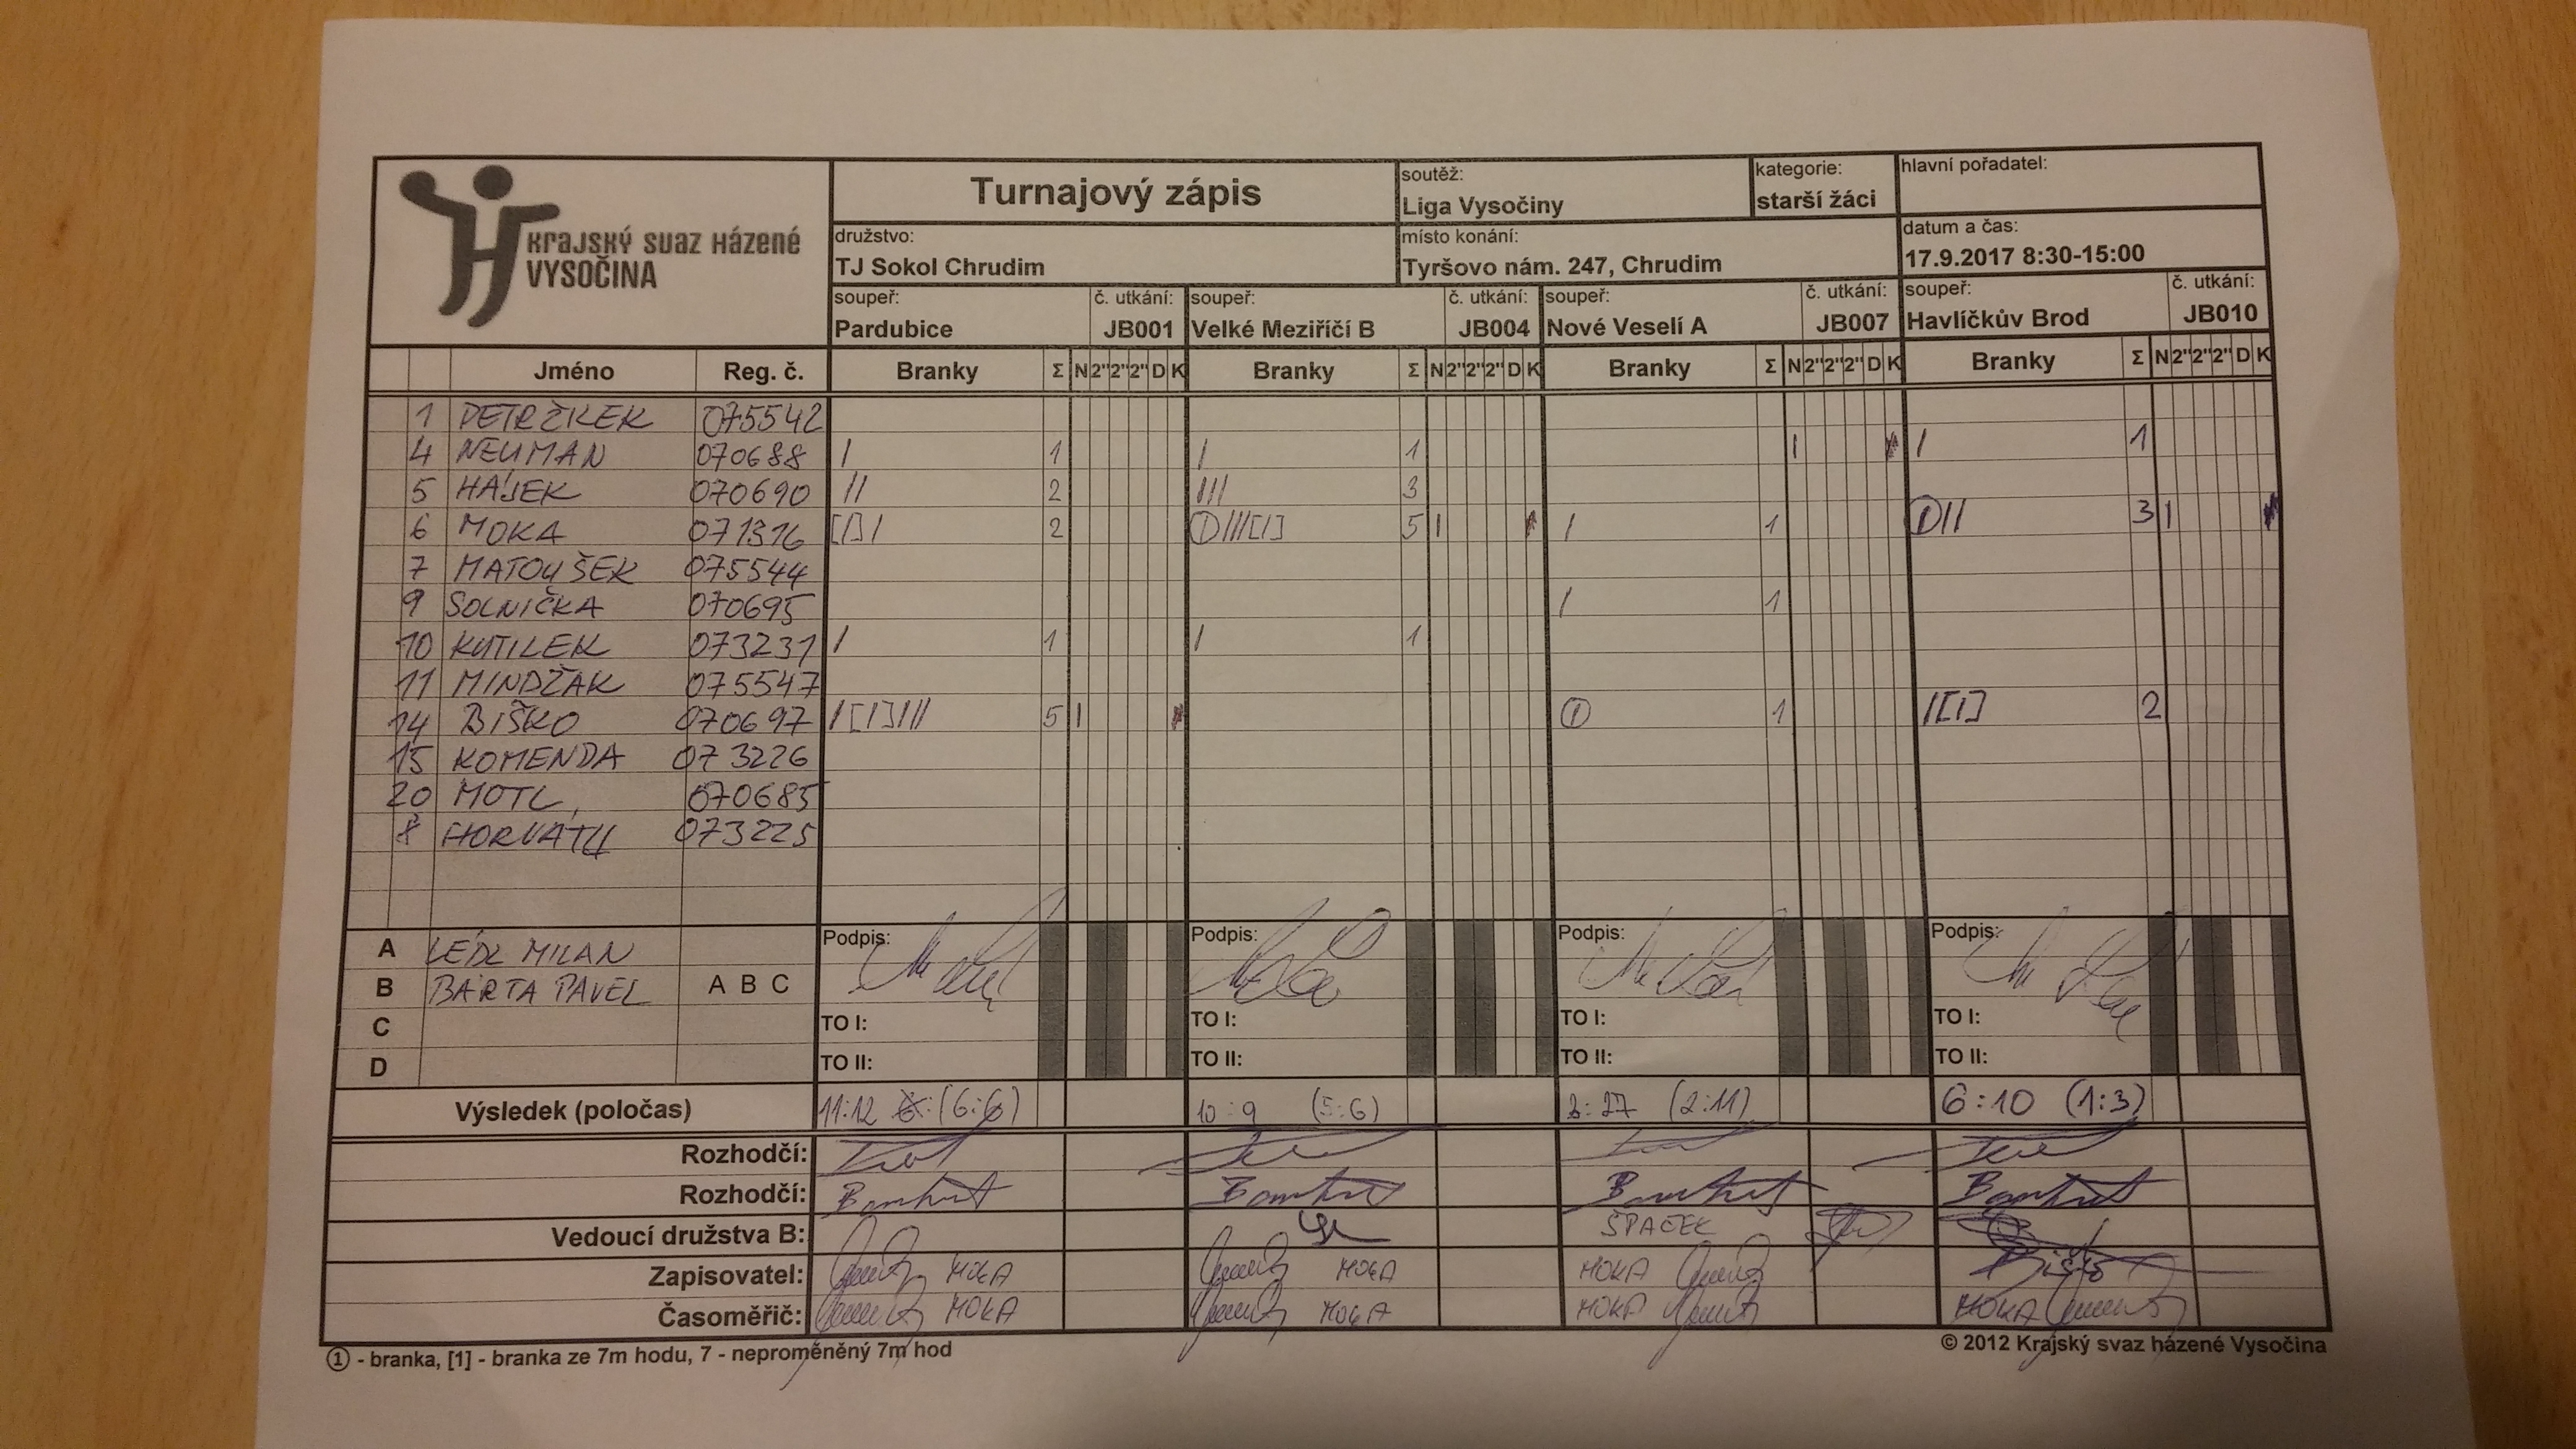 Krajský svaz házené
VYSOČINA
Turnajový zápis
soutěž:
Liga Vysočiny
kategorie:
starší žáci
hlavní pořadatel:
družstvo:
TJ Sokol Chrudim
místo konání:
Tyršovo nám. 247, Chrudim
datum a čas:
17.9.2017 8:30-15:00
soupeř: č. utkání: soupeř: č. utkání: soupeř: č. utkání: soupeř: č. utkání:
Pardubice JB001 Velké Meziříčí B JB004 Nové Veselí A JB007 Havlíčkův Brod JB010
Jméno Reg. č. Branky Σ N 2" 2" 2" D K Branky Σ N 2" 2" 2" D K Branky Σ N 2" 2" 2" D K Branky Σ N 2" 2" 2" D K
1 PETRŽILEK 075542
4 NEUMAN 070688 I 1 I 1 I I 1
5 HÁJEK 070690 II 2 III 3
6 MOKA 071316 [I] I 2 Ⓘ III [I] 5 I I 1 Ⓘ II 3 I
7 MATOUŠEK 075544
9 SOLNIČKA 070695 I 1
10 KUTILEK 073231 I 1 I 1
11 MINDŽAK 075547
14 BIŠKO 070697 I [I] III 5 I Ⓘ 1 I [I] 2
15 KOMENDA 073226
20 MOTL 070685
8 HORVÁTH 073225
A LÉDL MILAN Podpis: Podpis: Podpis: Podpis:
B BÁRTA PAVEL A B C
C TO I: TO I: TO I: TO I:
D TO II: TO II: TO II: TO II:
Výsledek (poločas) 11:12 (6:6) 10:9 (5:6) 3:27 (2:11) 6:10 (1:3)
Rozhodčí:
Rozhodčí:
Vedoucí družstva B: ŠPAČEK
Zapisovatel: MOKA MOKA MOKA
Časoměřič: MOKA MOKA MOKA MOKA
① - branka, [1] - branka ze 7m hodu, 7 - neproměněný 7m hod
© 2012 Krajský svaz házené Vysočina